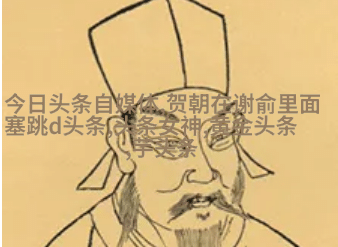 今日头条自媒体,贺朝在谢俞里面
塞跳d头条,头条女神,黄金头条
学头条